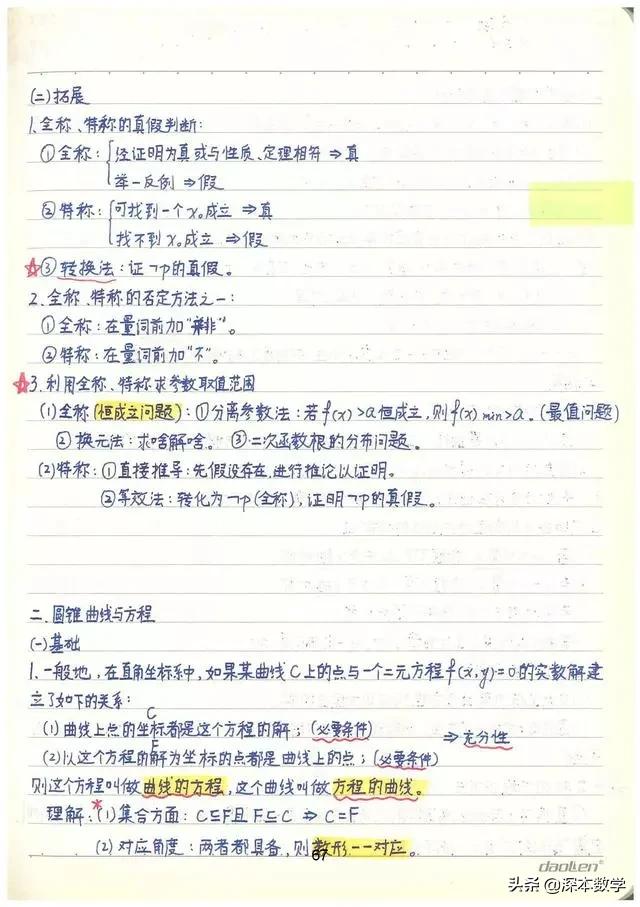 (二)拓展
1.全称、特称的真假判断:
①全称:{经证明为真或与性质、定理相符⇒真
举一反例⇒假
②特称:{可找到一个x₀成立⇒真
找不到x₀成立⇒假
☆③转换法:证¬p的真假。
2.全称、特称的否定方法之一:
①全称:在量词前加“并非”。
②特称:在量词前加“不”。
☆3.利用全称、特称求参数取值范围
(1)全称(恒成立问题):①分离参数法:若f(x)>a恒成立,则f(x)min>a。(最值问题)
②换元法:求啥解啥。③二次函数根的分布问题。
(2)特称:①直接推导:先假设存在,进行推论以证明。
②等效法:转化为¬p(全称),证明¬p的真假。
二.圆锥曲线与方程
(一)基础
1.一般地,在直角坐标系中,如果某曲线C上的点与一个二元方程f(x,y)=0的实数解建
立了如下的关系:
C
(1)曲线上点的坐标都是这个方程的解;(必要条件)
⇒充分性
F
(2)以这个方程的解为坐标的点都是曲线上的点;(必要条件)
则这个方程叫做曲线的方程,这个曲线叫做方程的曲线。
理解:*(1)集合方面:C⊆F且F⊆C⇒C=F
(2)对应角度:两者都具备,则数形一一对应。
67
daolien®
头条@深本数学